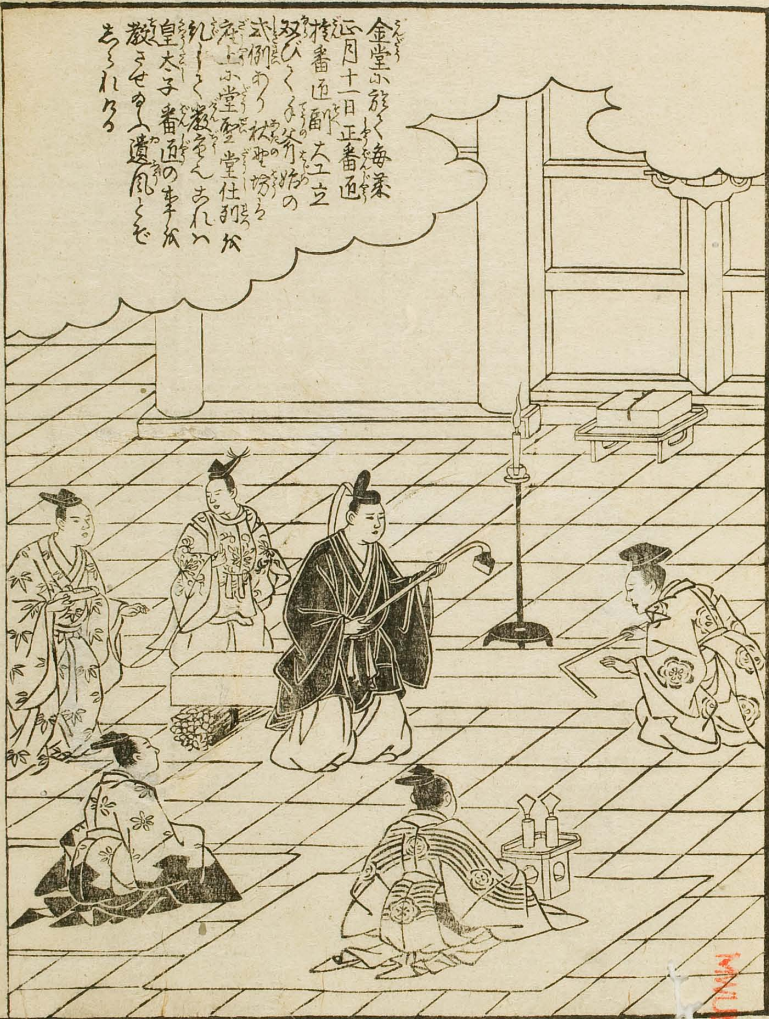 金堂に於て毎歳
正月十一日正番匠
権番匠副大工立
双びて手斧始の
式例あり秋野坊は
座上に堂聖堂仕列を
乱して厳重なりこれハ
皇太子番匠の事を
教させ給ふ遺風とぞ
しられける